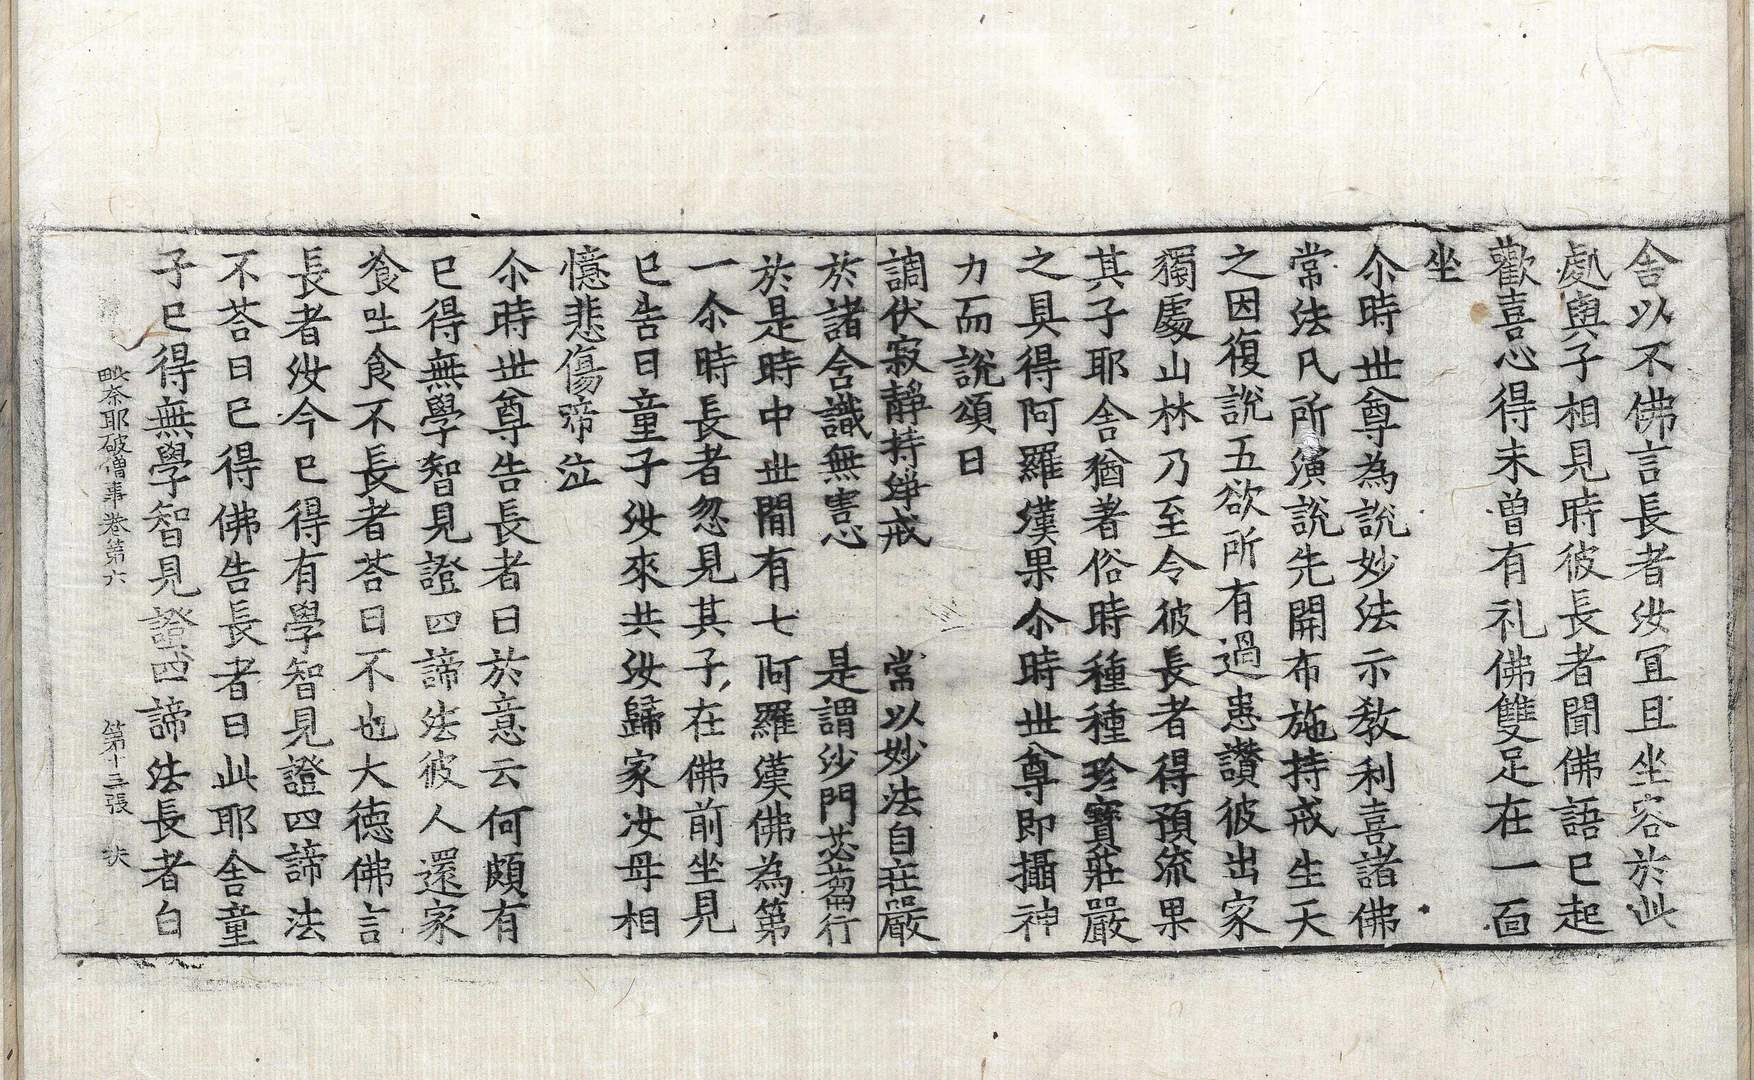 舎以不佛言長者汝宜且坐容於此
處與子相見時彼長者聞佛語已起
歡喜心得未曾有礼佛雙足在一面
坐
尒時世尊為說妙法示教利喜諸佛
常法凡所演說先開布施持戒生天
之因復說五欲所有過患讃彼出家
獨處山林乃至令彼長者得預流果
其子耶舎猶著俗時種種珍寶莊嚴
之具得阿羅漢果尒時世尊即攝神
力而說頌曰
調伏寂靜持淨戒　常以妙法自莊嚴
於諸含識無害心　是謂沙門苾蒭行
於是時中世間有七阿羅漢佛為第
一尒時長者忽見其子在佛前坐見
已告曰童子汝來共汝歸家汝母相
憶悲傷啼泣
尒時世尊告長者曰於意云何頗有
已得無學智見證四諦法彼人還家
飡吐食不長者荅曰不也大德佛言
長者汝今已得有學智見證四諦法
不荅曰已得佛告長者曰此耶舎童
子已得無學智見證四諦法長者白
毗奈耶破僧事卷第六　第十三張　扶